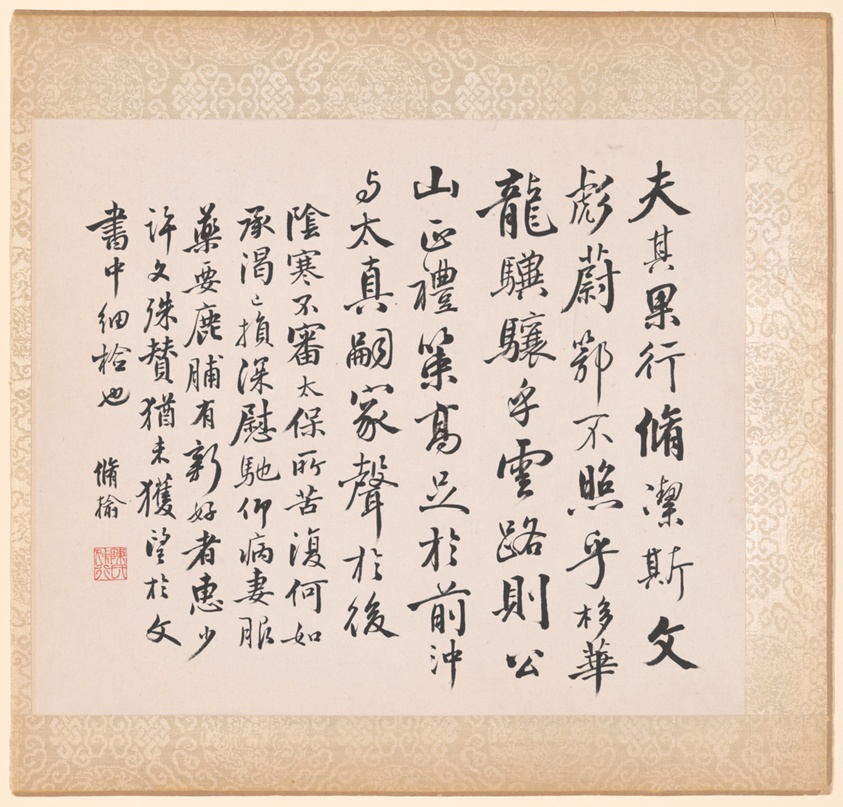 夫其果行脩潔斯文
彪蔚鄂不照乎栘華
龍驥驤乎雲路則公
山正禮策高足於前沖
与太真嗣家聲於後
陰寒不審太保所苦復何如
承渴已損深慰馳仰病妻服
藥要鹿脯有新好者惠少
許文殊赞猶未獲望於文
書中細撿也
脩揄